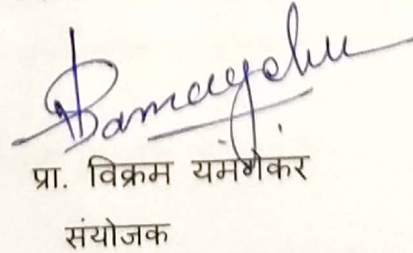 प्रा. विक्रम यमगेकर
संयोजक